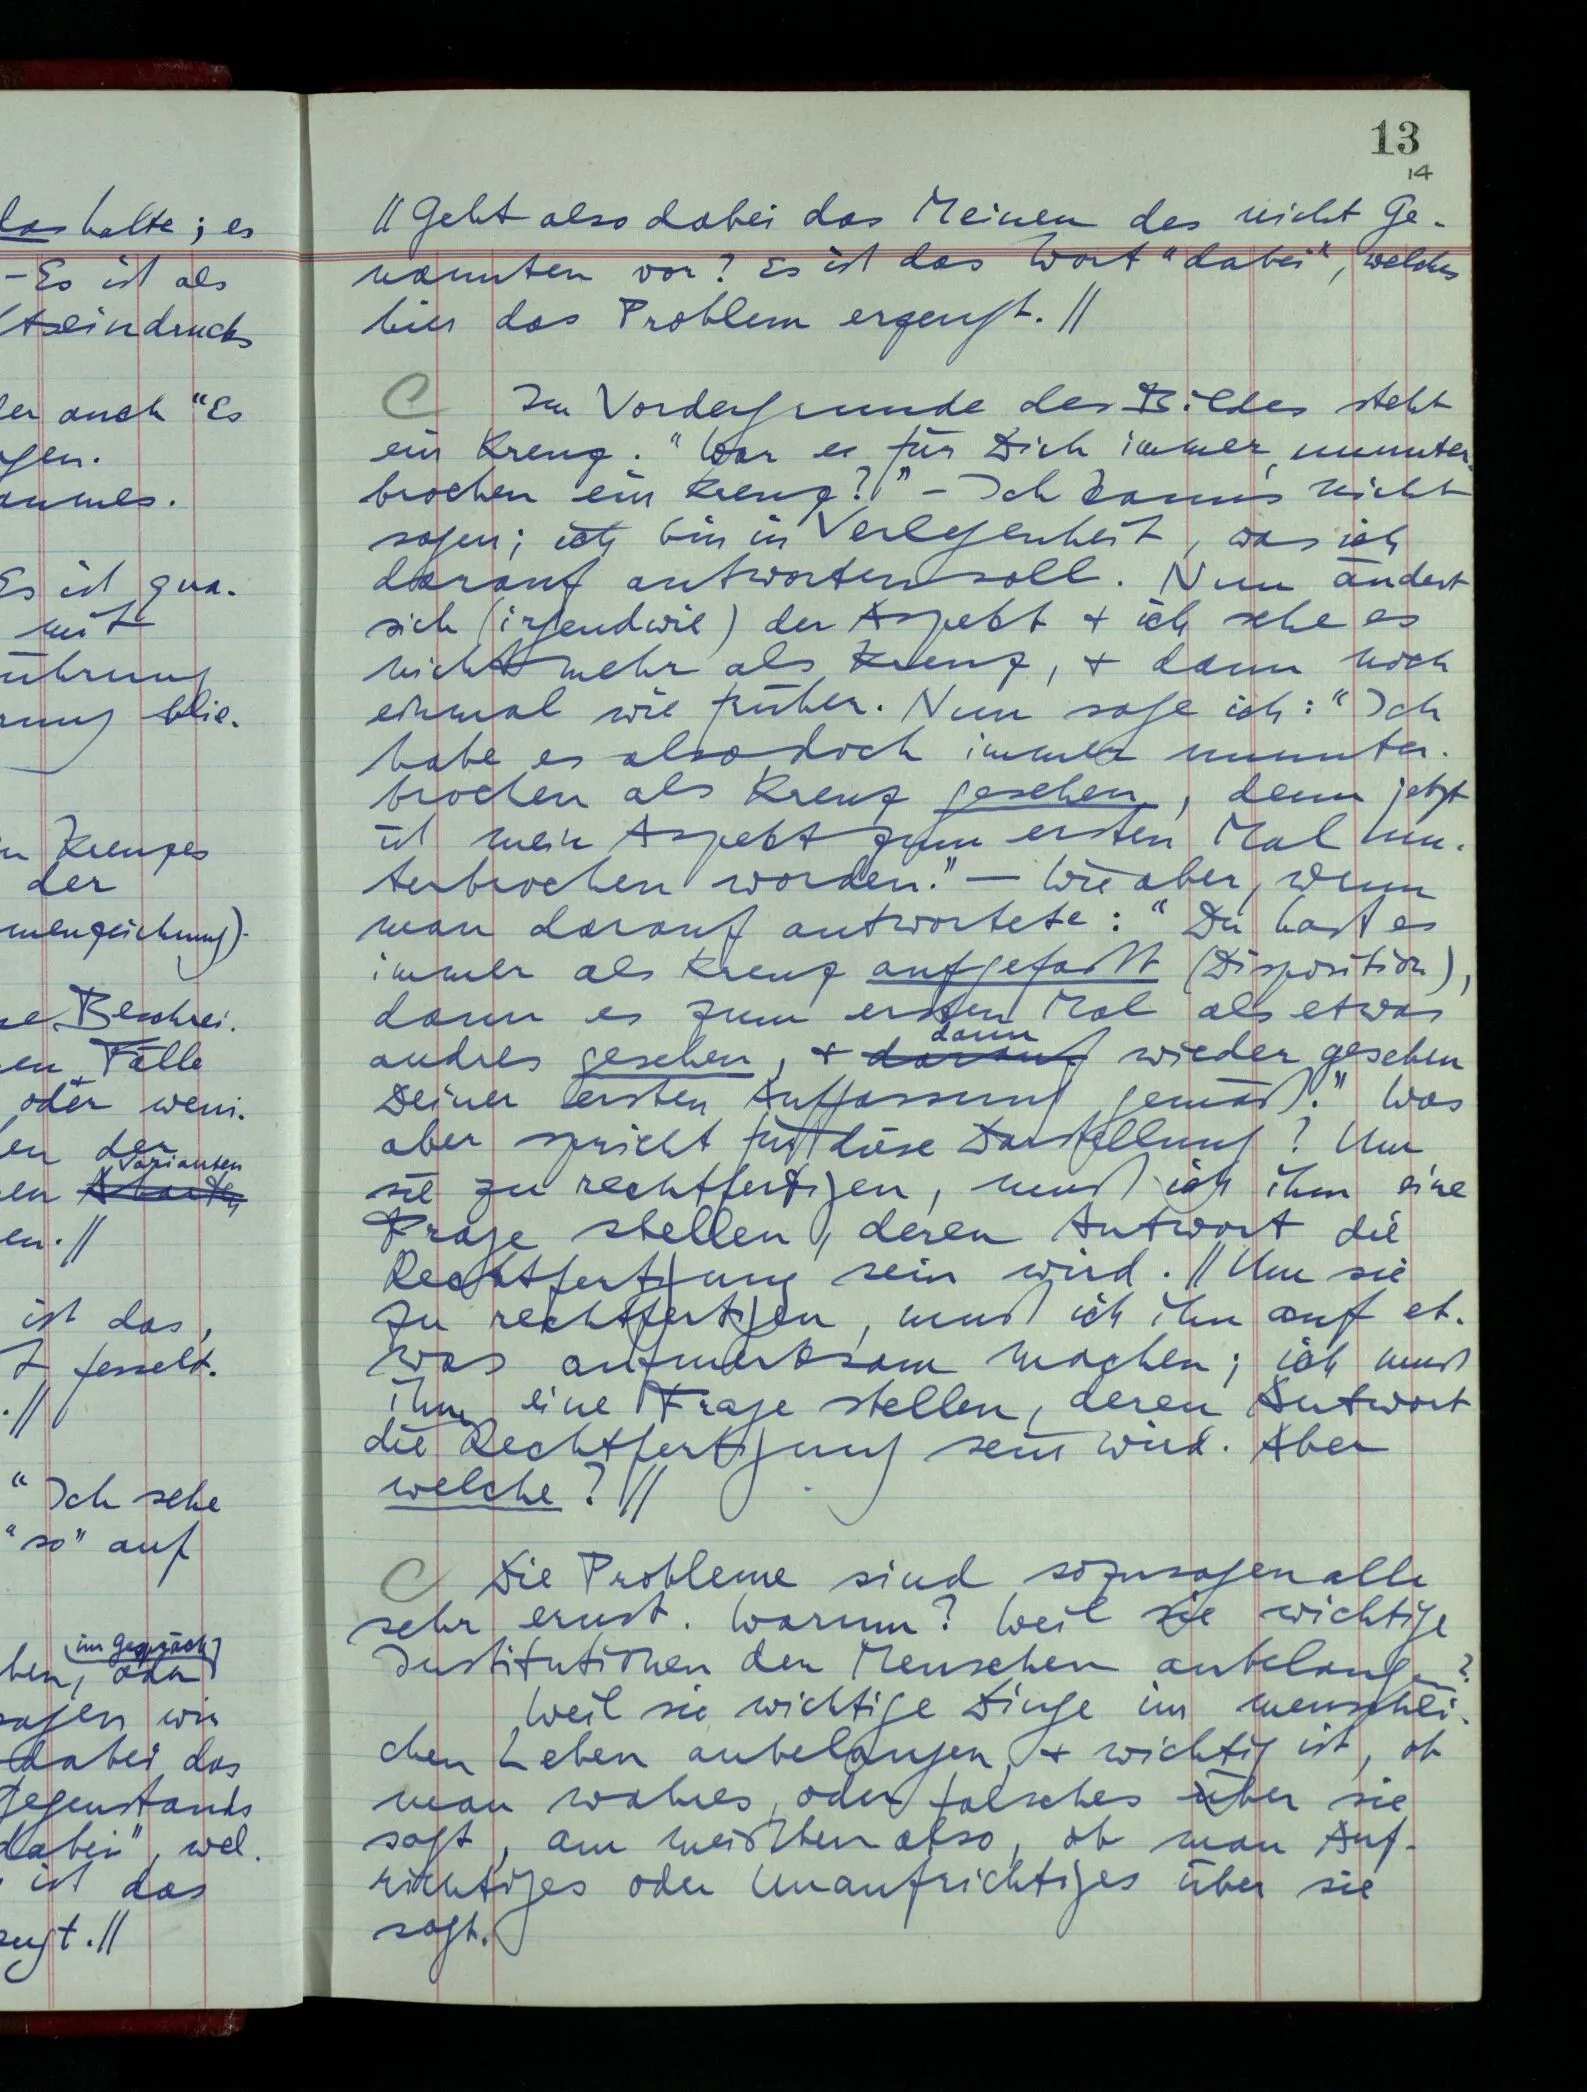 das halte; es
– Es ist als
tseindrucks
er auch "Es
gen.
aumes.
Es ist qua-
mit
ührung
rung blie-
n Kreuzes
der
menzeichnung).
se Beschrei-
en Fälle
oder weni-
en der
Varianten
en
en. //
ist das,
t fesselt.
. //
"Ich sehe
"so" auf
im Gespräch
ben, oder
sagen wir
dabei das
Gegenstands
dabei", wel-
ist das
eugt. //
13
14
// Geht also dabei das Meinen des nicht Ge-
nannten vor? Es ist das Wort "dabei", welches
hier das Problem erzeugt. //
C Im Vordergrunde des Bildes steht
ein Kreuz. "War es für Dich immer, ununter-
brochen ein Kreuz?" – Ich kann's nicht
sagen; ich bin in Verlegenheit, was ich
darauf antworten soll. Nun ändert
sich (irgendwie) der Aspekt & ich sehe es
nicht mehr als Kreuz, & dann noch
einmal wie früher. Nun sage ich: "Ich
habe es also doch immer ununter-
brochen als Kreuz gesehen, denn jetzt
ist mein Aspekt zum ersten Mal un-
terbrochen worden." – Wie aber, wenn
man darauf antwortete: "Du hast es
immer als Kreuz aufgefaßt (Disposition),
dann es zum ersten Mal als etwas
dann
andres gesehen, & darauf wieder gesehen
Deiner ersten Auffassung gemäß." Was
aber spricht für diese Darstellung? Um
sie zu rechtfertigen, muß ich ihm eine
Frage stellen, deren Antwort die
Rechtfertigung sein wird. // Um sie
zu rechtfertigen, muß ich ihn auf et-
was aufmerksam machen; ich muß
ihm eine Frage stellen, deren Antwort
die Rechtfertigung sein wird. Aber
welche? //
C Die Probleme sind sozusagen alle
sehr ernst. Warum? Weil sie wichtige
Institutionen der Menschen anbelangen?
Weil sie wichtige Dinge im menschli-
chen Leben anbelangen, & wichtig ist, ob
man wahres, oder falsches über sie
sagt, am meisten also, ob man Auf-
richtiges oder Unaufrichtiges über sie
sagt.